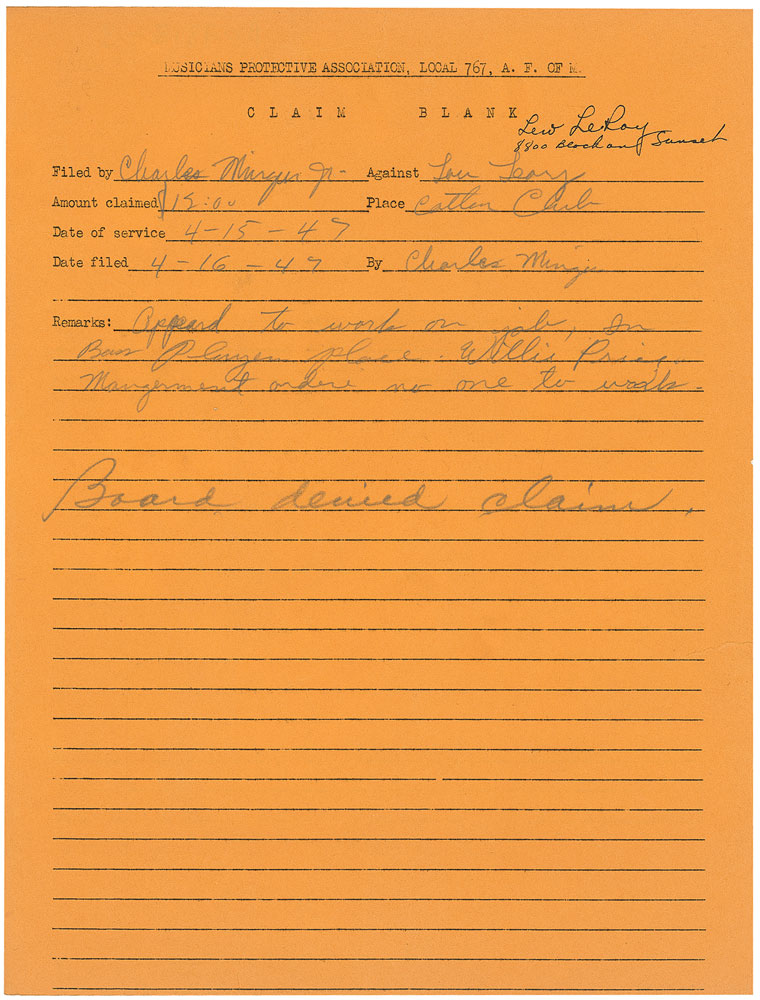 MUSICIANS PROTECTIVE ASSOCIATION, LOCAL 767, A. F. OF M.
CLAIM BLANK
Lew LeRoy
8800 Block on Sunset
Filed by Charles Mingus Jr- Against Lou
Amount claimed $15:00 Place Cotton Club
Date of service 4-15-47
Date filed 4-16-47 By Charles Mingus
Remarks: to work on job, In
Bass Players place. Willis
order no one to work.
Board denied claim.